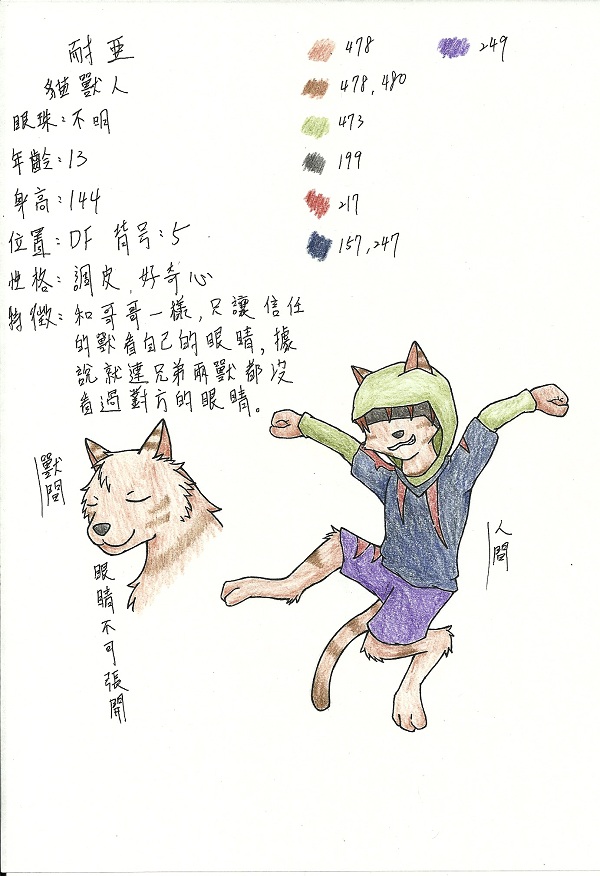 耐亞
貓獸人
眼珠：不明
年齡：13
身高：144
位置：DF 背号：5
性格：調皮、好奇心
特徵：和哥哥一樣，只讓信任
的獸看自己的眼睛，據
說就連兄弟兩獸都沒
看過對方的眼睛。
478
249
478,480
473
199
217
157,247
獸間
眼睛不可張開
人間